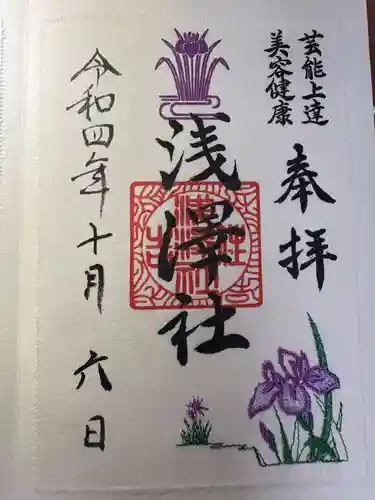 芸能上達
美容健康
奉拝
浅澤社
令和四年十月六日